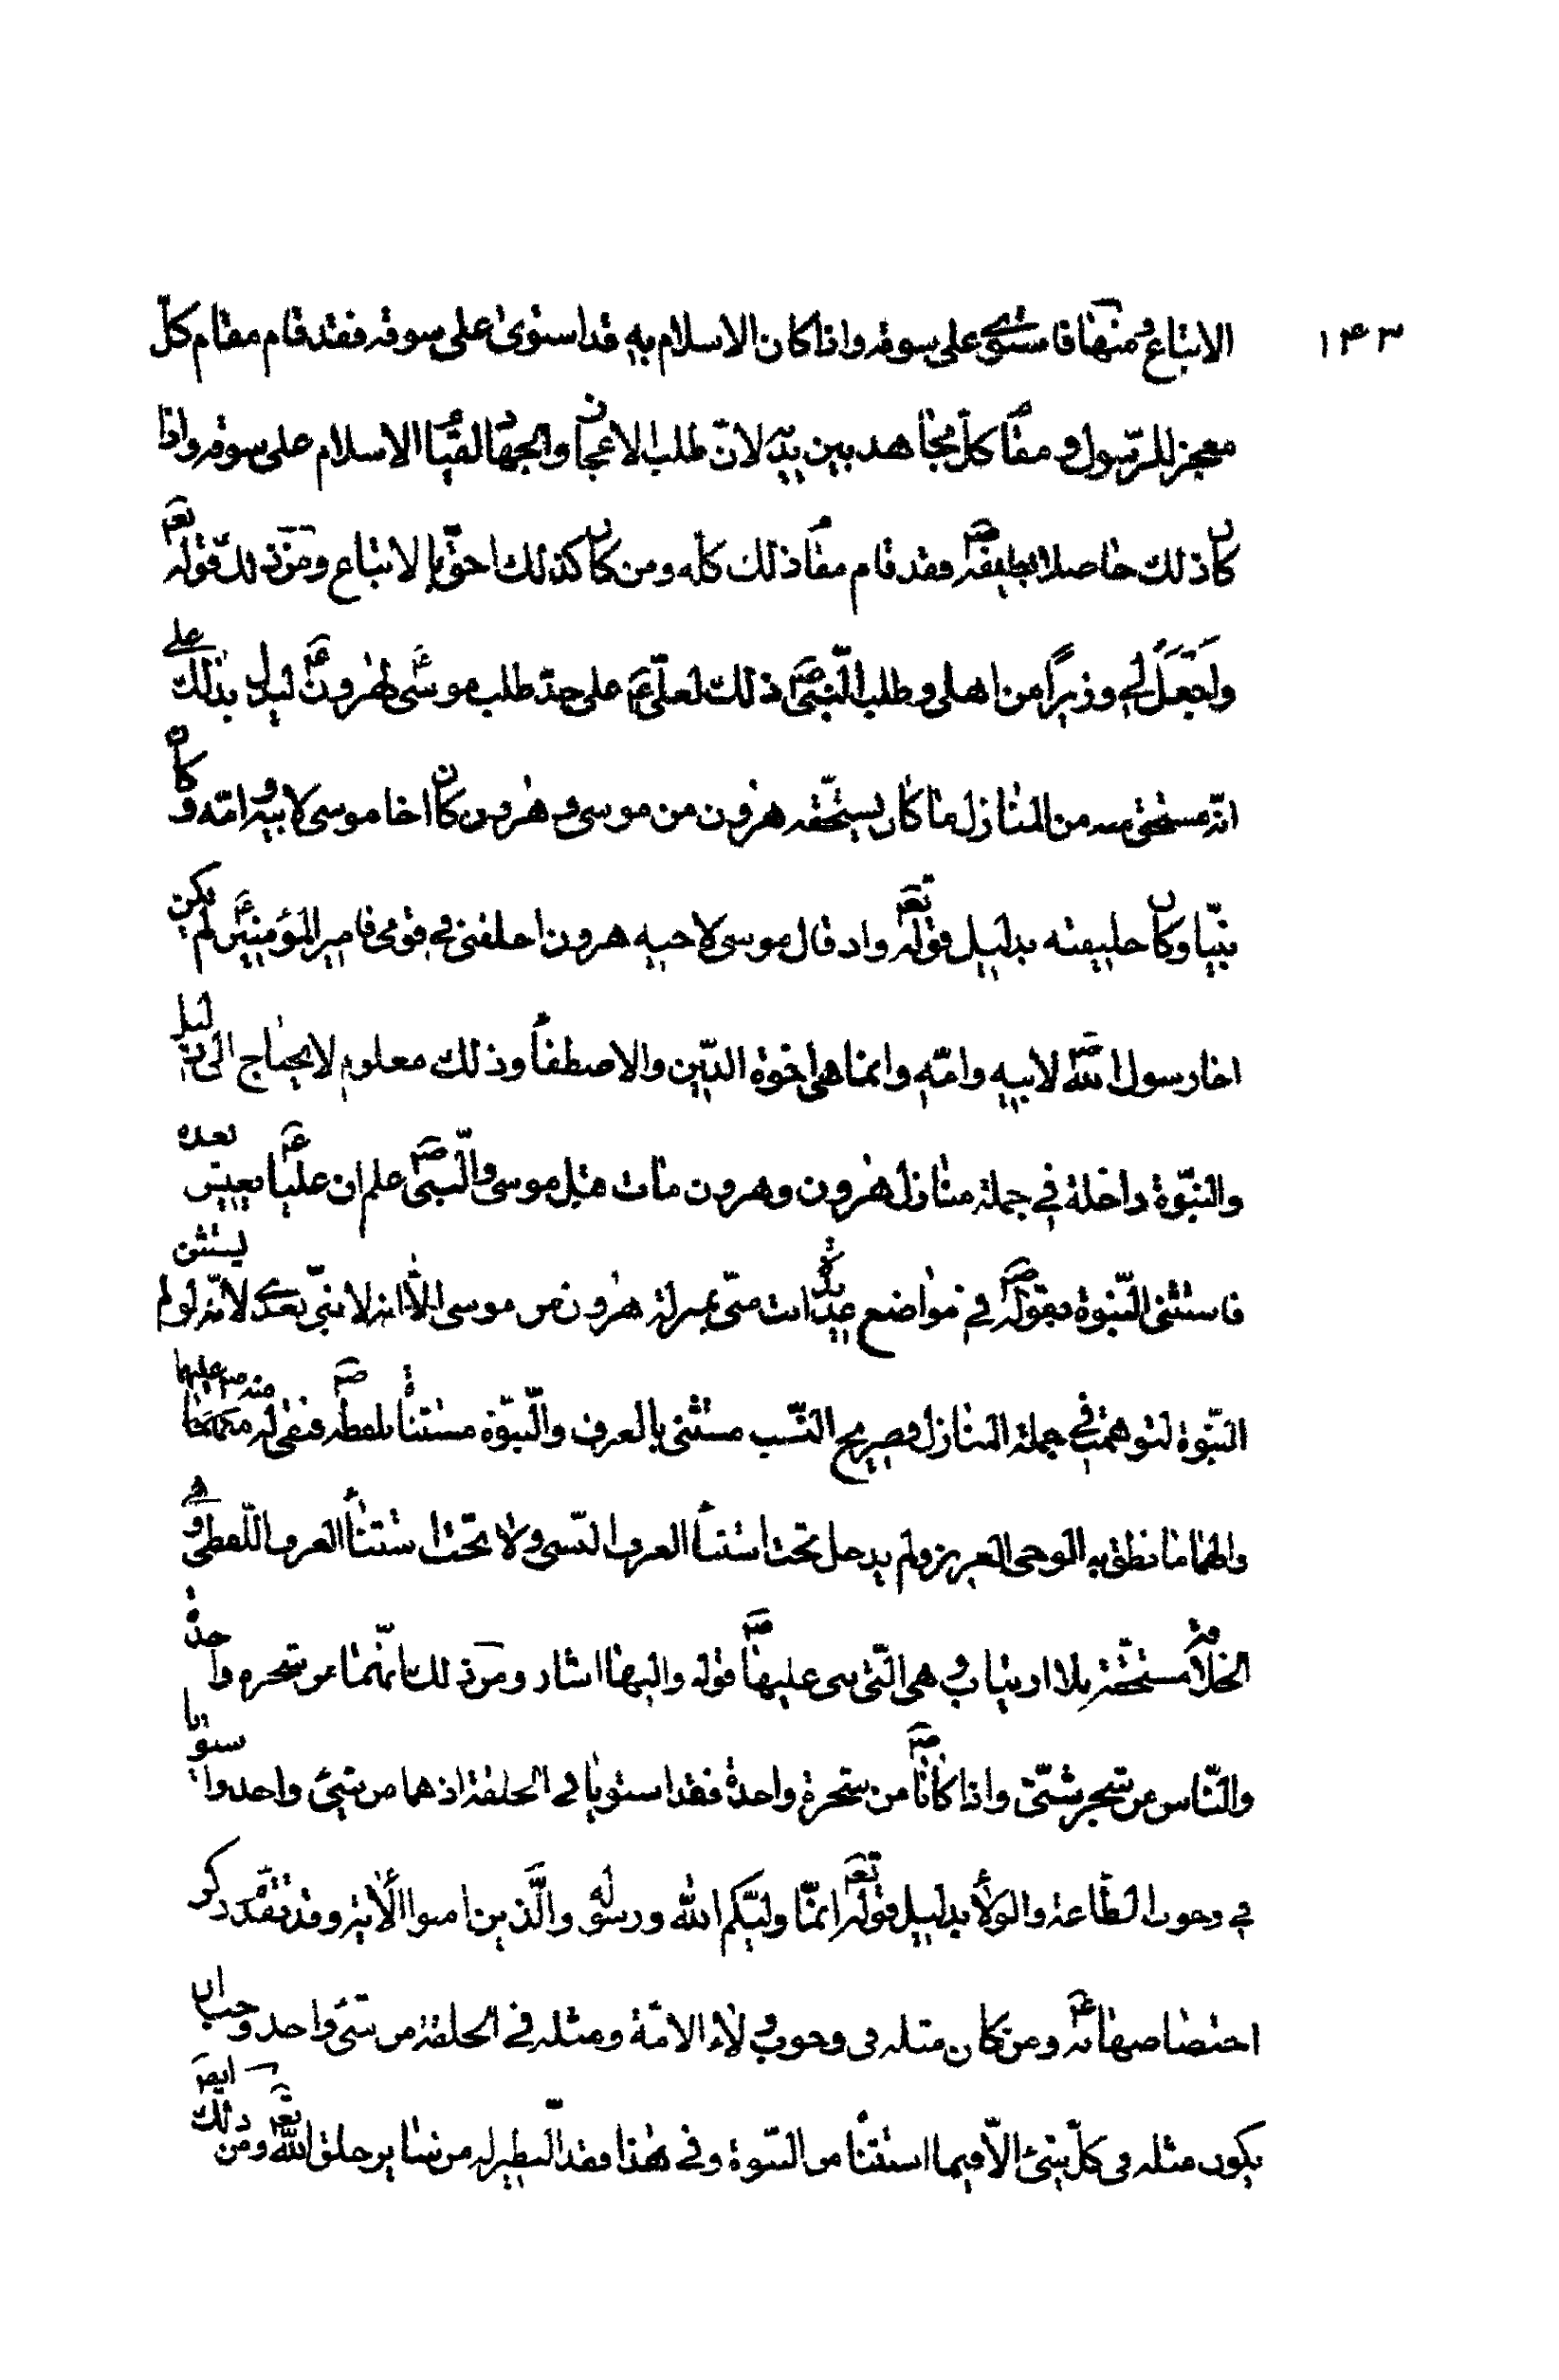 ١۴٣
الاتباع ومنها فاستوى على سوقه واذا كان الاسلام به قد استوى على سوقه فقد قام مقام كلّ
معجز للرّسول و مقام كلّ مجاهد بين يديه لانّ طلب الاعجان والجهاد لقيام الاسلام على سوقه واذا
كان ذلك حاصلا فقد قام مقام ذلك كله ومن كان كذلك احقّ بالاتباع ومن ذلك قوله تع
واجعل لي وزيراً من اهلى وطلب النّبىّ ص ذلك لعلىّ ع على حدّ طلب موسى ع لهرون ع ليدل بذلك على
انّه مستحق من المنازل ما كان يستحّقه هرون من موسى و هرون كان اخا موسى لابيه و امّه و كان
نبيّا وكان خليفته بدليل قوله تع واذ قال موسى لاخيه هرون اخلفنى في قومى فامير المؤمنين ع لم يكن
اخا رسول اللّه ص لابيه وامّه وانما هى اخوة الدّين والاصطفاء وذلك معلوم لا يحتاج الى دليل
والنبّوة داخلة في جملة منازل هرون وهرون مات قبل موسى والنّبىّ ص علم ان عليّا ع يعيش بعده
فاستثنى النّبوة بقوله ص في مواضع عديدة انت منّى بمنزلة هرون من موسى الّا انه لا نبىّ بعدى لانّه لو لم يستثن
النبّوة لتوهمت في جملة المنازل فصريح النّسب مستثنى بالعرف والنّبوّة مستثناة بلفظه ص
ما نطق به الوحى العزيز ولم يدخل تحت استثناء العرف النّسبى ولا تحت استثناء العرف اللّفظى و هى
الخلافة مستحقّة بلا ارتياب و هى الّتى عليها ص قوله واليها اشار ومن ذلك انّهما من شجره واحدة
والنّاس من شجر شتّى واذا كانا ص من شجرة واحدة فقد استويا في الخلقة اذ هما من شىء واحد واستويا
في وجوب الطّاعة والولاء بدليل قوله تع انمّا وليّكم اللّه ورسوله والّذين امنوا الآية وقد تقدّم ذكر
اختصاصها به ع ومن كان مثله فى وجوب ولاء الامّة ومثله في الخلقة من شىء واحد وجب ان
يكون مثله فى كلّ شىء الّا فيما استثناه من النّبوة وفي هذا فقد النّظير له من سائر خلق اللّه تع ومن ذلك ايض